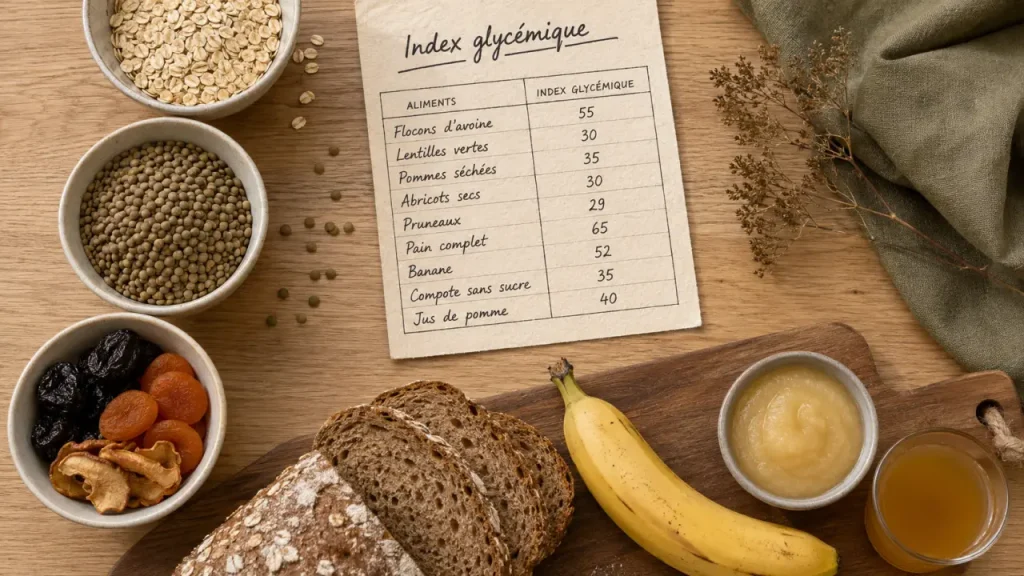 Index glycémique
ALIMENTS INDEX GLYCÉMIQUE
Flocons d'avoine 55
Lentilles vertes 30
Pommes séchées 35
Abricots secs 30
Pruneaux 29
Pain complet 65
Banane 52
Compote sans sucre 35
Jus de pomme 40